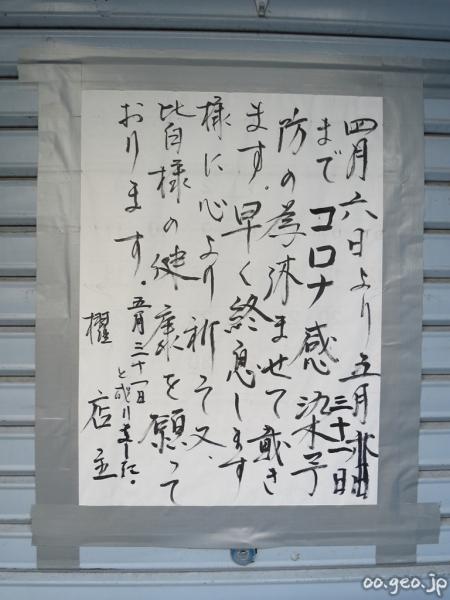 四月六日より五月三十一日
までコロナ感染予
防の為休ませて戴き
ます。早く終息します
様に心より祈そ又、
皆様の健康を願って
おります。
五月三十一日
と成りました。
櫂 店主
oo.geo.jp